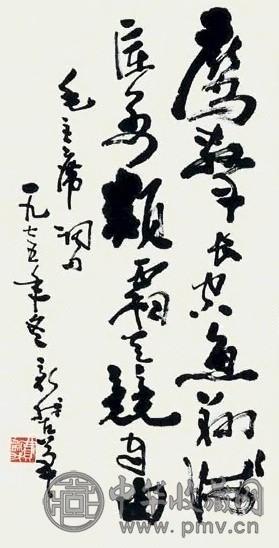 鹰擊长空鱼翔浅
底萬類霜天競自由
毛主席词句
一九七五年冬
中华收藏网
www.pmv.cn